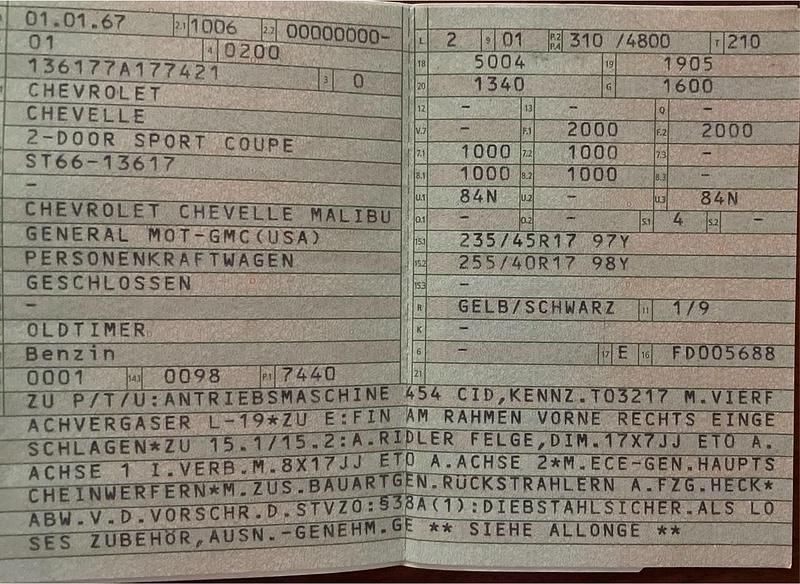 01.01.67 2.1 1006 2.2 00000000-
01 4 0200
136177A177421 3 0
CHEVROLET
CHEVELLE
2-DOOR SPORT COUPE
ST66-13617
-
CHEVROLET CHEVELLE MALIBU
GENERAL MOT-GMC(USA)
PERSONENKRAFTWAGEN
GESCHLOSSEN
-
OLDTIMER
Benzin
0001 14.1 0098 P.1 7440
L 2 9 01 P.2 P.4 310 /4800 T 210
18 5004 19 1905
20 1340 G 1600
12 - 13 - Q -
V.7 - F.1 2000 F.2 2000
7.1 1000 7.2 1000 7.3 -
8.1 1000 8.2 1000 8.3 -
U.1 84N U.2 - U.3 84N
O.1 - O.2 - S.1 4 S.2 -
15.1 235/45R17 97Y
15.2 255/40R17 98Y
15.3 -
R GELB/SCHWARZ 11 1/9
K -
6 - 17 E 16 FD005688
21
ZU P/T/U:ANTRIEBSMASCHINE 454 CID,KENNZ.T03217 M.VIERF
ACHVERGASER L-19*ZU E:FIN AM RAHMEN VORNE RECHTS EINGE
SCHLAGEN*ZU 15.1/15.2:A.RIDLER FELGE,DIM.17X7JJ ETO A.
ACHSE 1 I.VERB.M.8X17JJ ETO A.ACHSE 2*M.ECE-GEN.HAUPTS
CHEINWERFERN*M.ZUS.BAUARTGEN.RÜCKSTRAHLERN A.FZG.HECK*
ABW.V.D.VORSCHR.D.STVZO:§38A(1):DIEBSTAHLSICHER.ALS LO
SES ZUBEHÖR,AUSN.-GENEHM.GE ** SIEHE ALLONGE **